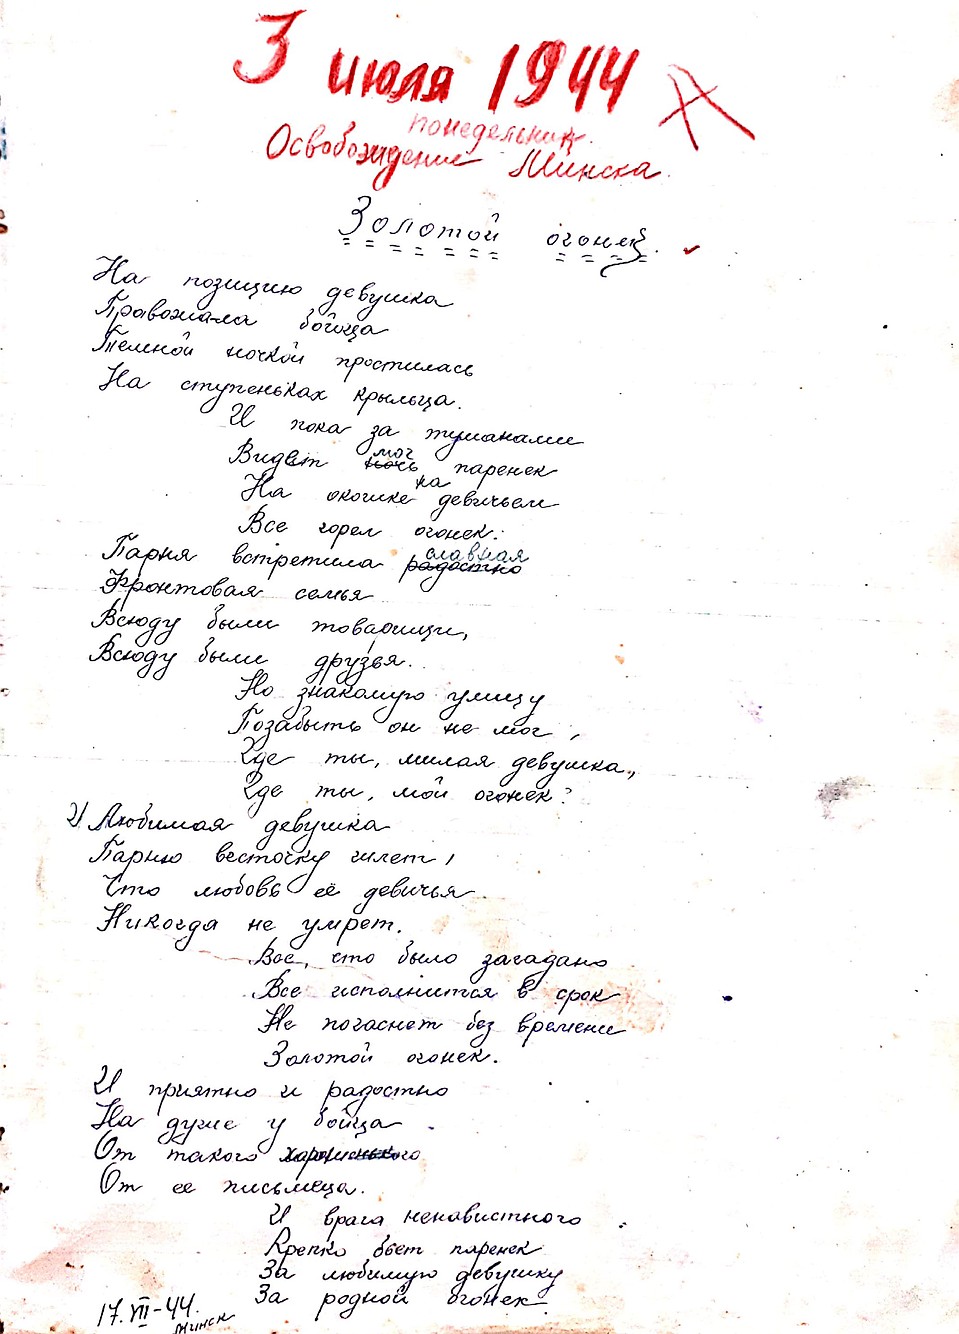 3 июля 1944
понедельник.
Освобождение Минска.
Золотой огонек.
На позицию девушка
Провожала бойца
Темной ночкой простилась
На ступеньках крыльца.
И пока за туманами
Видет ночь мог паренек
На окошке на девичьем
Все горел огонек.
Парня встретила радостно славная
Фронтовая семья
Всюду были товарищи,
Всюду были друзья.
Но знакомую улицу
Позабыть он не мог,
Где ты, милая девушка,
Где ты, мой огонек?
2) Любимая девушка
Парню весточку шлет,
Что любовь её девичья
Никогда не умрет.
Все, что было загадано
Все исполнится в срок
Не погаснет без времени
Золотой огонек.
И приятно и радостно
На душе у бойца
От такого хорошенького
От ее письмеца.
И врага ненавистного
Крепко бьет паренек
За любимую девушку
За родной огонек.
17.VII-44.
Минск